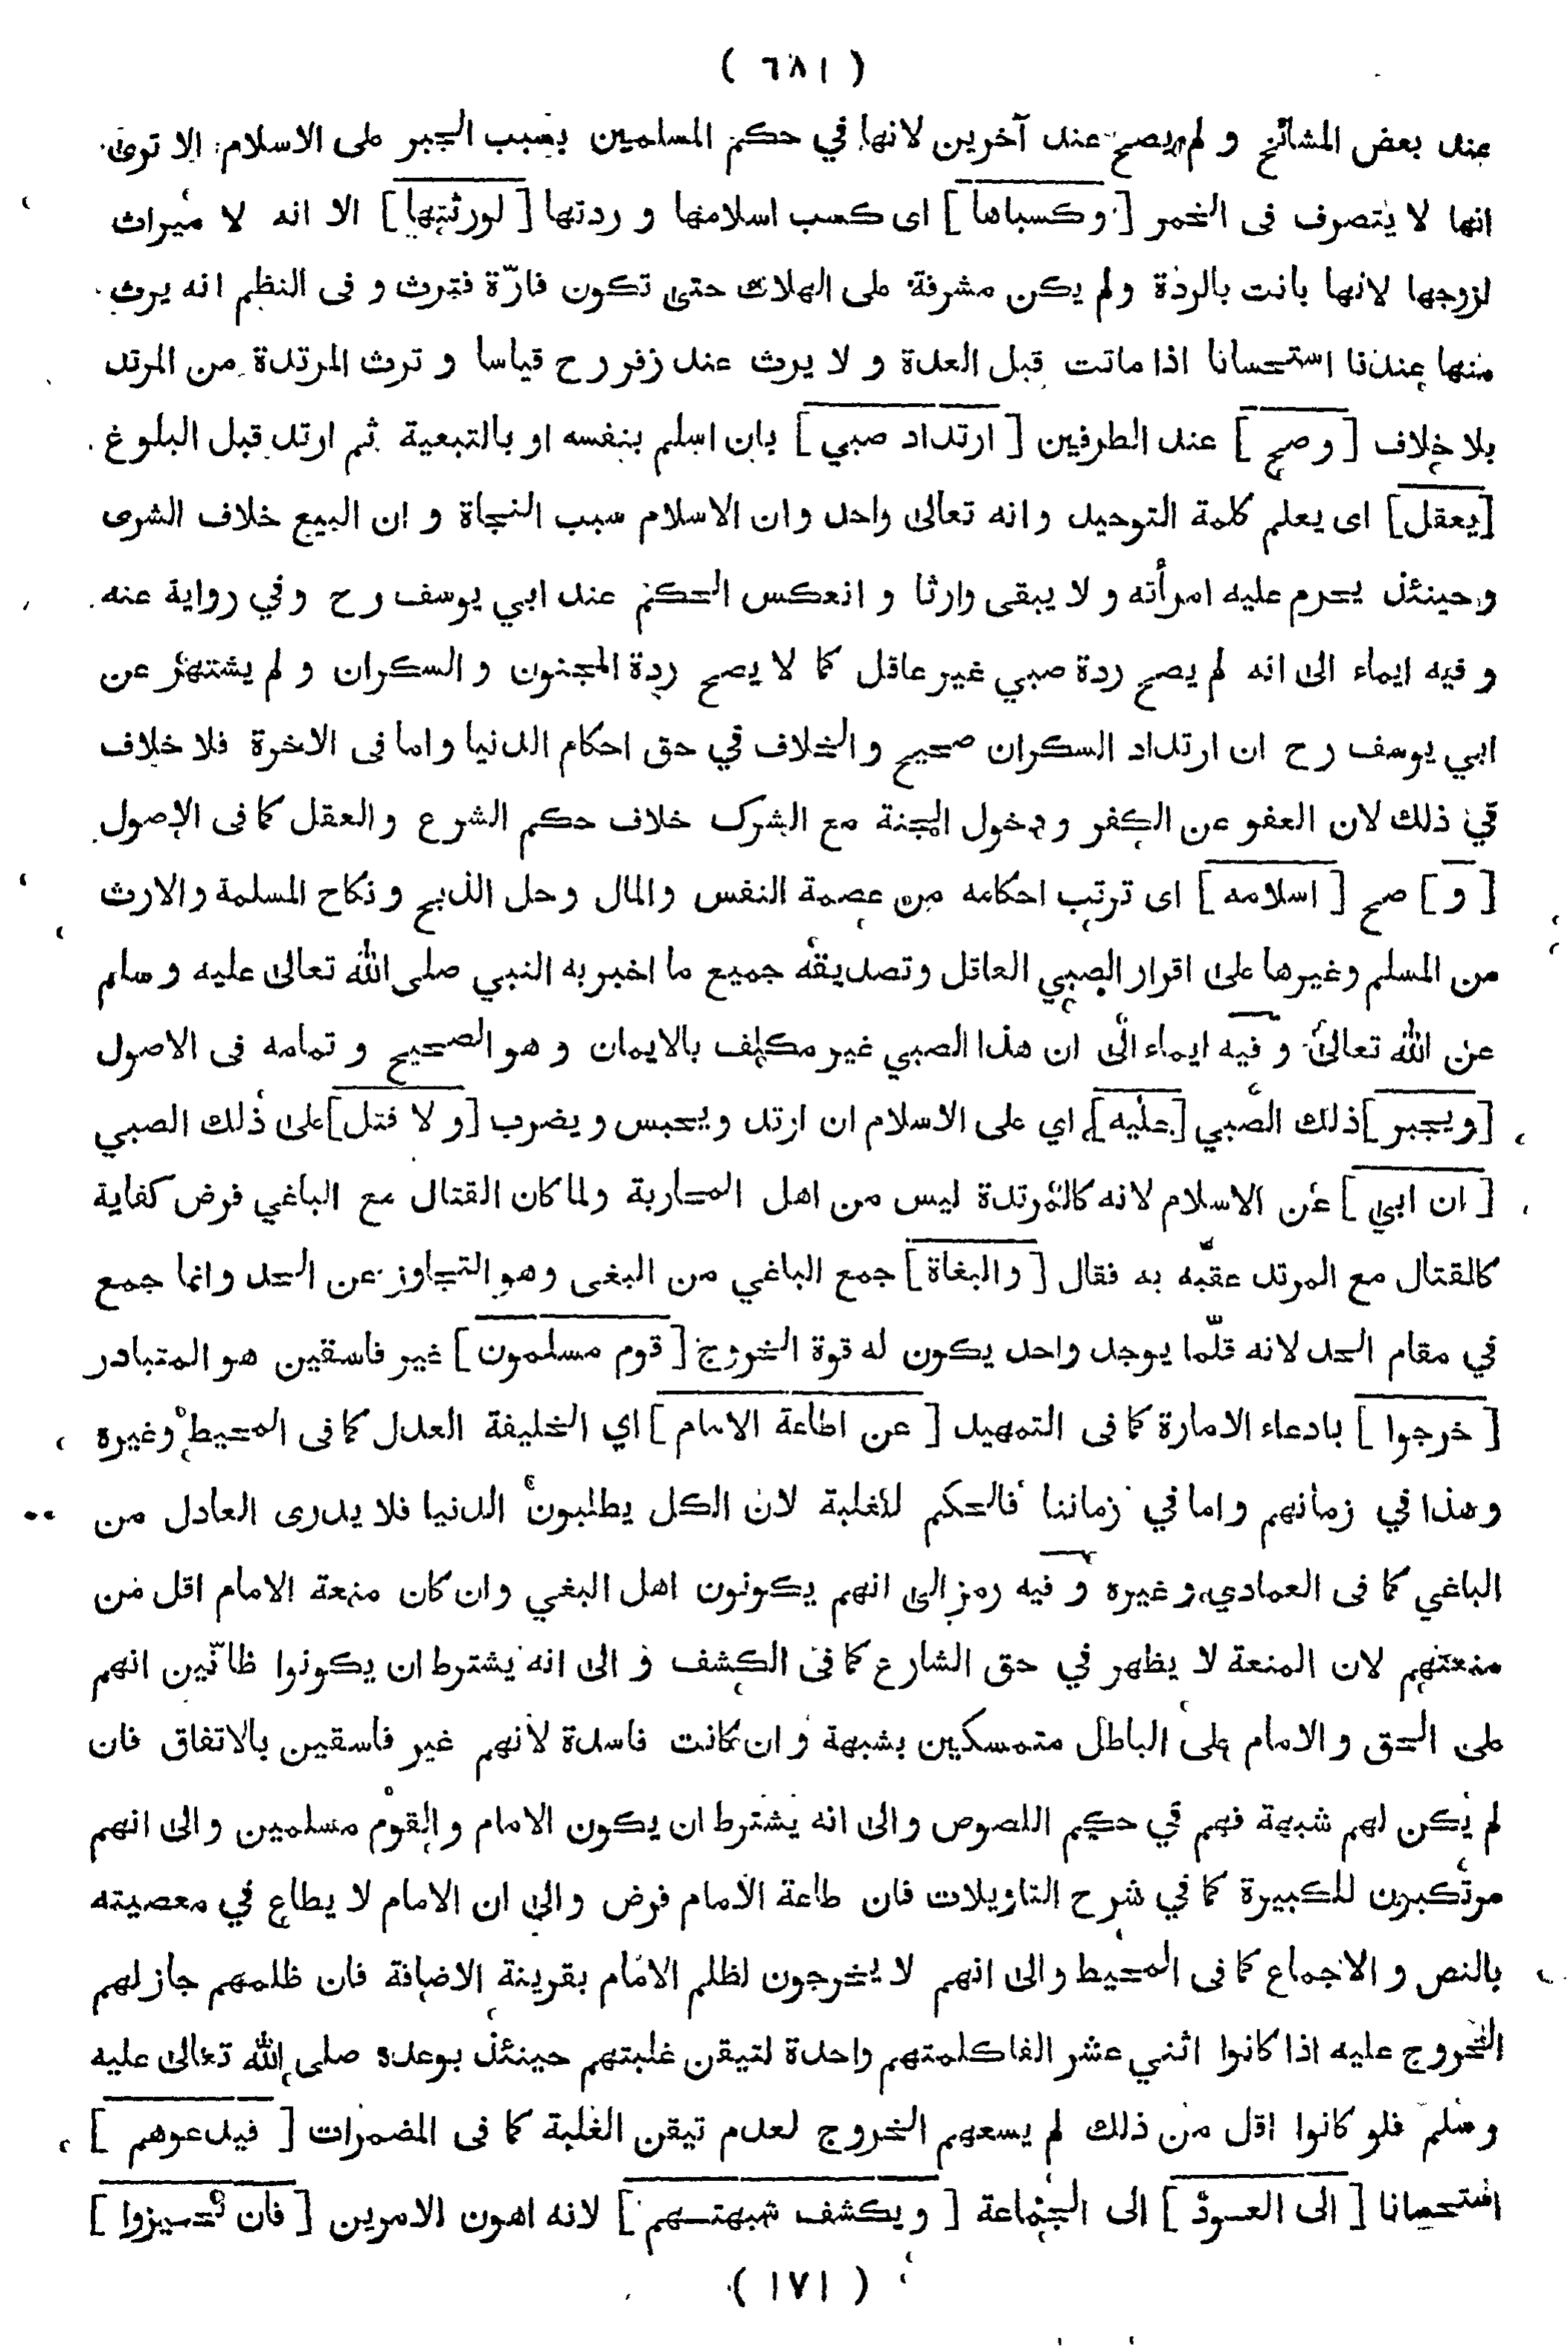 ( ٦٨١ )
عند بعض المشائخ و لم يصح عند آخرين لانها في حكم المسلمين بسبب الجبر على الاسلام الا ترى
انها لا يتصرف فى الخمر [ وكسباها ] اى كسب اسلامها و ردتها [ لورثتها ] الا انه لا ميراث
لزوجها لانها بانت بالردة ولم يكن مشرفة على الهلاك حتى تكون فارّة فترث و فى النظم انه يرث
منها عندنا استحسانا اذا ماتت قبل العدة و لا يرث عند زفر رح قياسا و ترث المرتدة من المرتد
بلا خلاف [ و صح ] عند الطرفين [ ارتداد صبي ] بان اسلم بنفسه او بالتبعية ثم ارتد قبل البلوغ
[يعقل] اى يعلم كلمة التوحيد وانه تعالى واحد وان الاسلام سبب النجاة و ان البيع خلاف الشرى
وحينئذ يحرم عليه امرأته و لا يبقى وارثا و انعكس الحكم عند ابي يوسف رح وفي رواية عنه
و فيه ايماء الى انه لم يصح ردة صبي غير عاقل كما لا يصح ردة المجنون و السكران و لم يشتهر عن
ابي يوسف رح ان ارتداد السكران صحيح و الخلاف في حق احكام الدنيا واما فى الاخرة فلا خلاف
في ذلك لان العفو عن الكفر و دخول الجنة مع الشرك خلاف حكم الشرع والعقل كما فى الاصول
[ و ] صح [ اسلامه ] اى ترتب احكامه من عصمة النفس والمال وحل الذبح ونكاح المسلمة والارث
من المسلم وغيرها على اقرار الصبي العاقل وتصديقه جميع ما اخبر به النبي صلى الله تعالى عليه وسلم
عن الله تعالى و فيه ايماء الى ان هذا الصبي غير مكلف بالايمان و هو الصحيح و تمامه فى الاصول
[ويجبر] ذلك الصبي [عليه] اي على الاسلام ان ارتد ويحبس ويضرب [و لا قتل] على ذلك الصبي
[ ان ابى ] عن الاسلام لانه كالمرتدة ليس من اهل المحاربة ولما كان القتال مع الباغي فرض كفاية
كالقتال مع المرتد عقّبه به فقال [ والبغاة ] جمع الباغي من البغى وهو التجاوز عن الحد وانما جمع
في مقام الحد لانه قلّما يوجد واحد يكون له قوة الخروج [ قوم مسلمون ] غير فاسقين هو المتبادر
[ خرجوا ] بادعاء الامارة كما فى التمهيد [ عن اطاعة الامام ] اي الخليفة العدل كما فى المحيط وغيره
وهذا في زمانهم واما في زماننا فالحكم للغلبة لان الكل يطلبون الدنيا فلا يدرى العادل من
الباغي كما فى العمادي وغيره و فيه رمز الى انهم يكونون اهل البغي وان كان منعة الامام اقل من
منعتهم لان المنعة لا يظهر في حق الشارع كما فى الكشف و الى انه يشترط ان يكونوا ظانّين انهم
على الحق و الامام على الباطل متمسكين بشبهة و ان كانت فاسدة لانهم غير فاسقين بالاتفاق فان
لم يكن لهم شبهة فهم في حكم اللصوص والى انه يشترط ان يكون الامام والقوم مسلمين والى انهم
مرتكبون للكبيرة كما في شرح التاويلات فان طاعة الامام فرض والى ان الامام لا يطاع في معصيته
بالنص و الاجماع كما فى المحيط والى انهم لا يخرجون لظلم الامام بقرينة الاضافة فان ظلمهم جاز لهم
الخروج عليه اذا كانوا اثني عشر الفا كلمتهم واحدة لتيقن غلبتهم حينئذ بوعده صلى الله تعالى عليه
وسلم فلو كانوا اقل من ذلك لم يسعهم الخروج لعدم تيقن الغلبة كما فى المضمرات [ فيدعوهم ]
استحسانا [ الى العود ] الى الجماعة [ ويكشف شبهتهم ] لانه اهون الامرين [ فان تحيزوا ]
( ١٧١ )